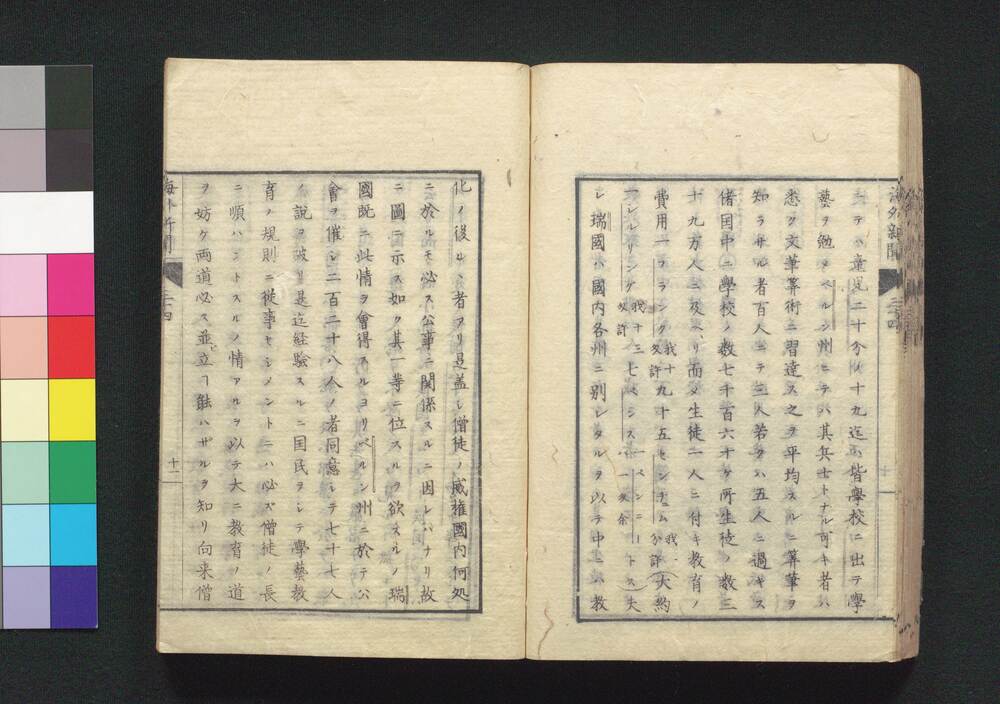 海外新聞
テハ童児二十分ノ十九迄ハ皆學校ニ出テ學
藝ヲ勉メベルン州ニテハ其兵士トナル可キ者ハ
悉ク文筆算術ニ習達ス之ヲ平均スルニ算筆ヲ
知ラサル者百人ニテ三人若クハ五人ニ過キス
偖国中ニ學校ノ数七千百六十ケ所生徒ノ数三
十九万人ニ及ベリ而メ生徒一人ニ付キ教育ノ
費用一フランク我十九十五センチーム
一レルリング我十三七ペンス
レ瑞國ハ國内各州ニ別レタルヲ以テ中ニハ教
化ノ後ル、者アリ是蓋シ僧徒ノ威権國内何処
ニ於ルモ必ス公事ニ関係スルニ因レハナリ故
ニ圖ニ示ス如ク其一等ニ位スルヲ欲スルノ瑞
國既ニ此情ヲ會得スルヨリベルン州ニ於テ公
會ヲ催シ二百二十八人ノ者同意シテ七十七人
ノ説ヲ破リ是迄経験スルニ国民ヲシテ學藝教
育ノ規則ニ従事セシメントニハ必ズ僧徒ノ長
ニ順ハントスルノ情アルヲ以テ大ニ教育ノ道
ヲ妨ケ両道必ス並立ヿ能ハザルヲ知リ向来僧
十一